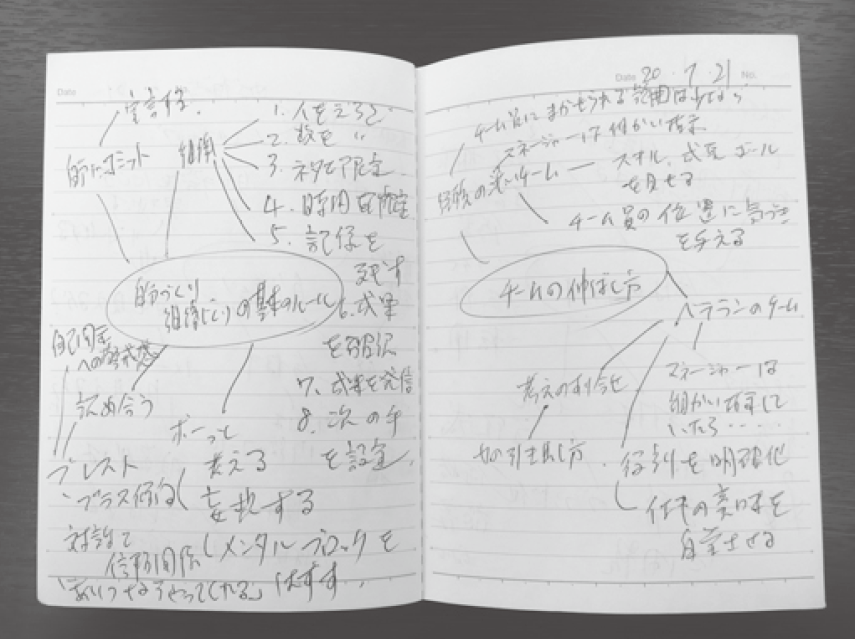 Date
宣言する.
自分にコミット
組織
1. 人をえらぶ
2. 数を 〃
3. ネタを限定
4. 時間を限定
5. 記録を
残す
自分づくり
組織づくりの基本のルール
6. 成果
を確認
7. 成果を発信
8. 次の手
を設定
自己肯定
への
認め合う
ボーっと
考える
ブレスト
・プラス傾向
妄想する
対話で
信頼関係
メンタルブロックを
はずす.
「あいつならやってくれる」
Date 20・7・21 No.
チーム員にまかせられる範囲は少なく
マネージャーは細かい指示
経験の浅いチーム
スキル、成長、ゴール
を見せる
チーム員の位置に気づき
を与える
チームの伸ばし方
ベテランのチーム
考えの
マネージャーは
細かい指示して
いたら‥‥‥
力の引き出し方.
役割を明確化
仕事の意味を
自覚させる